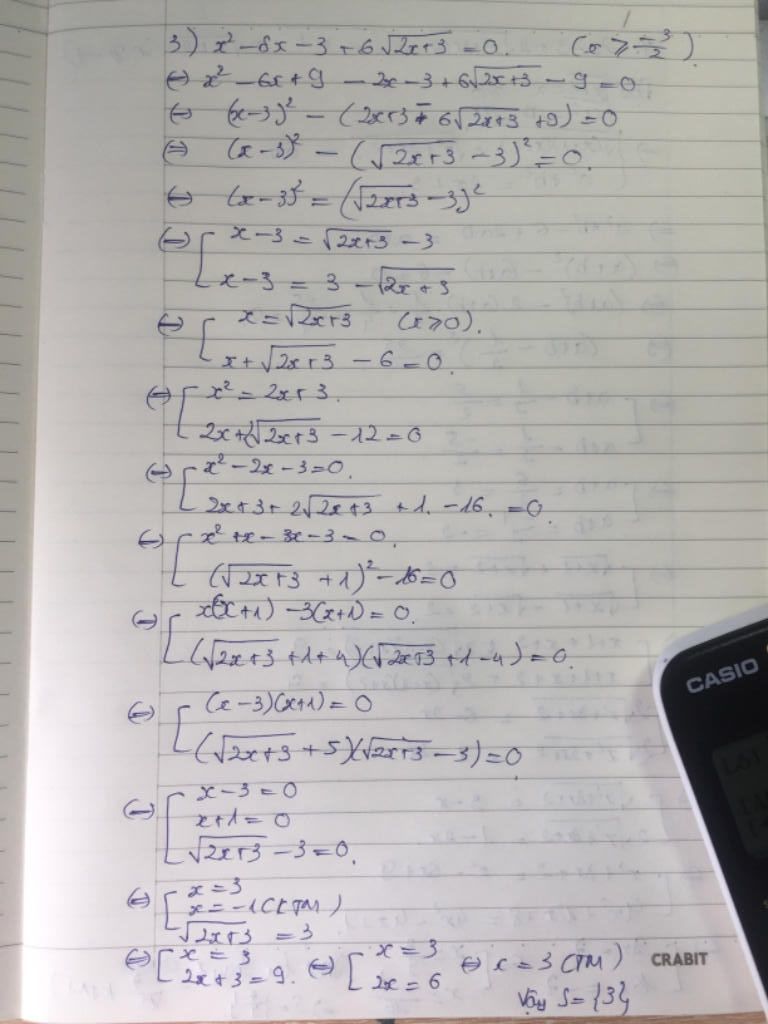 3) x² - 8x - 3 + 6√(2x+3) = 0. (x ≥ -3/2).
⇔ x² - 6x + 9 - 2x - 3 + 6√(2x+3) - 9 = 0
⇔ (x-3)² - (2x+3 - 6√(2x+3) + 9) = 0
⇔ (x-3)² - (√(2x+3) - 3)² = 0.
⇔ (x-3)² = (√(2x+3) - 3)²
⇔ [ x-3 = √(2x+3) - 3
x-3 = 3 - √(2x+3)
⇔ [ x = √(2x+3) (x ≥ 0).
x + √(2x+3) - 6 = 0.
⇔ [ x² = 2x + 3.
2x + 2√(2x+3) - 12 = 0
⇔ [ x² - 2x - 3 = 0.
2x + 3 + 2√(2x+3) + 1 - 16 = 0.
⇔ [ x² + x - 3x - 3 = 0.
(√(2x+3) + 1)² - 16 = 0
⇔ [ x(x+1) - 3(x+1) = 0.
(√(2x+3) + 1 + 4)(√(2x+3) + 1 - 4) = 0.
⇔ [ (x-3)(x+1) = 0
(√(2x+3) + 5)(√(2x+3) - 3) = 0
⇔ [ x - 3 = 0
x + 1 = 0
√(2x+3) - 3 = 0.
⇔ [ x = 3
x = -1 (KTM)
√(2x+3) = 3
⇔ [ x = 3 ⇔ [ x = 3 ⇔ x = 3 (TM)
2x + 3 = 9. 2x = 6
Vậy S = {3}
CASIO
CRABIT